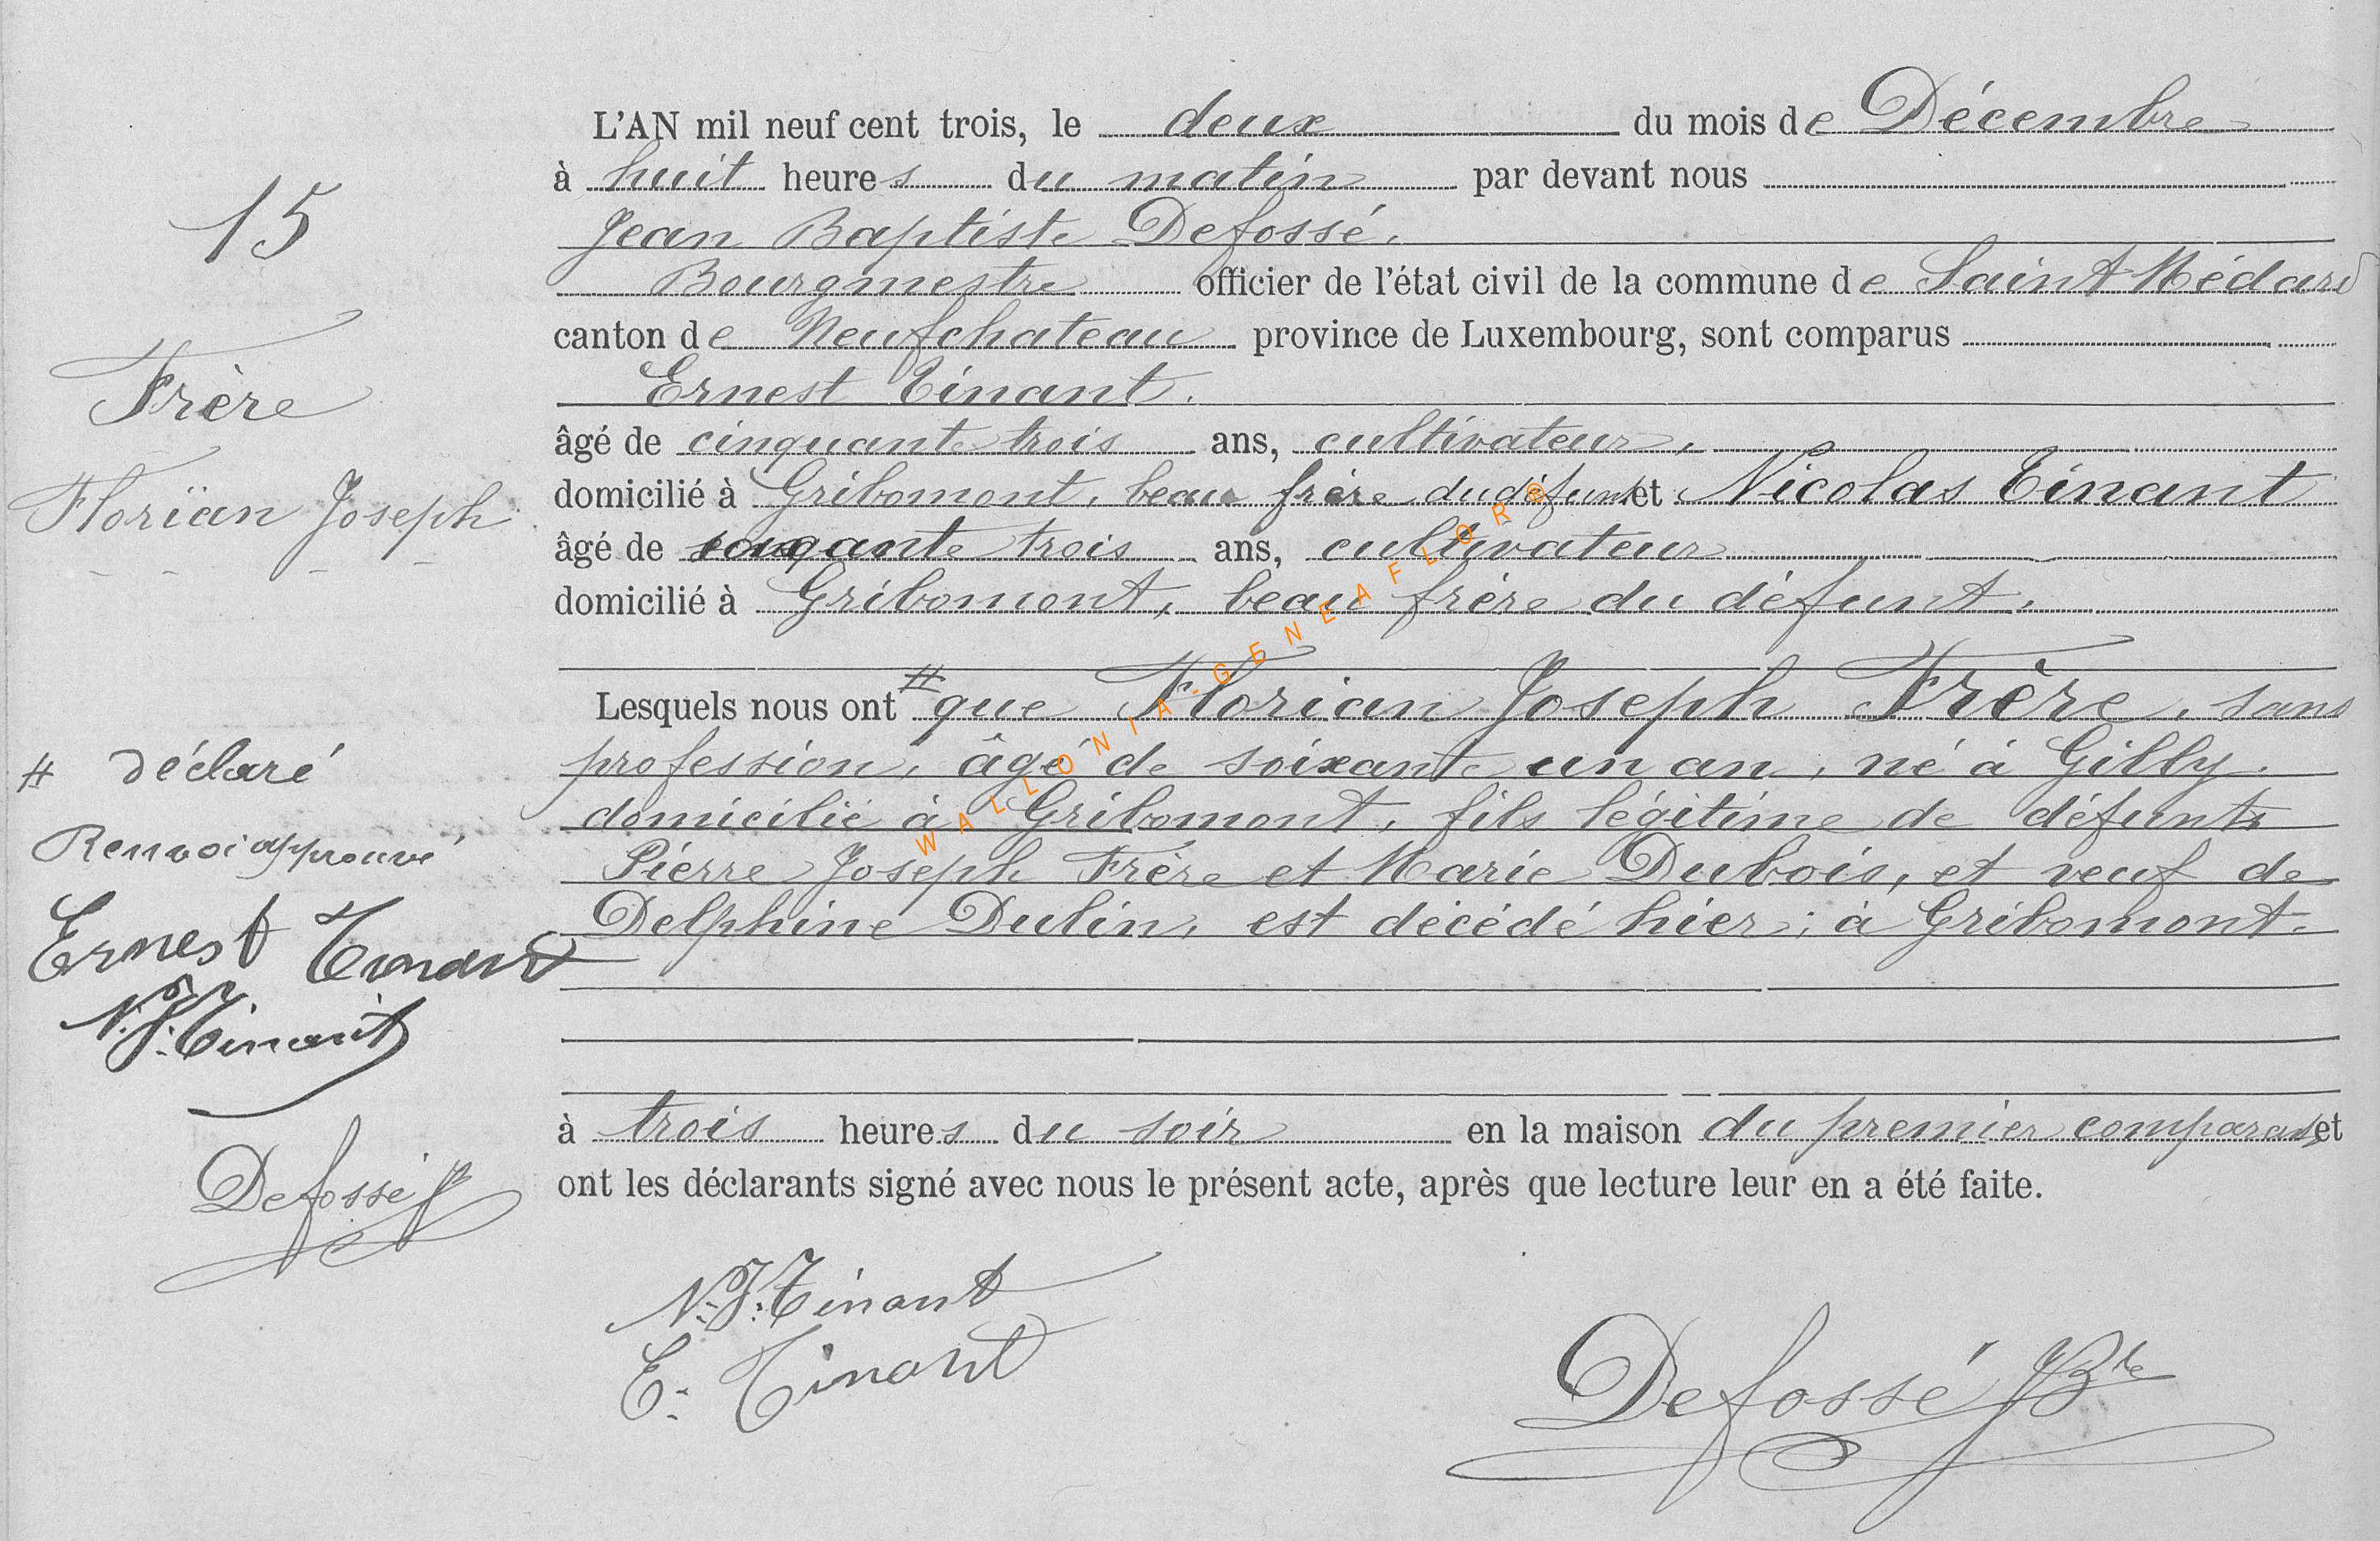 15
Frère
Florïan Joseph
L'AN mil neuf cent trois, le deux du mois de Décembre
à huit heures du matin par devant nous
Jean Baptiste Defossé,
Bourgmestre officier de l'état civil de la commune de Saint Médard
canton de Neufchateau province de Luxembourg, sont comparus
Ernest Tinant.
âgé de cinquante trois ans, cultivateur,
domicilié à Gribomont, beau frère du défunt et Nicolas Tinant
âgé de soixante trois ans, cultivateur
domicilié à Gribomont, beau frère du défunt.
Lesquels nous ont # que Florian Joseph Frère, sans
profession, âgé de soixante un an, né à Gilly,
domicilié à Gribomont, fils légitime de défunts
Pierre Joseph Frère et Marie Dubois, et veuf de
Delphine Dulin, est décédé hier, à Gribomont.
à trois heures du soir en la maison du premier comparant, et
ont les déclarants signé avec nous le présent acte, après que lecture leur en a été faite.
# déclaré
Renvoi approuvé
Ernest Tinant
N.J. Tinant
Defossé
N.J. Tinant
E. Tinant
Defossé JBte
WALLONIA-GENEAFLOR©